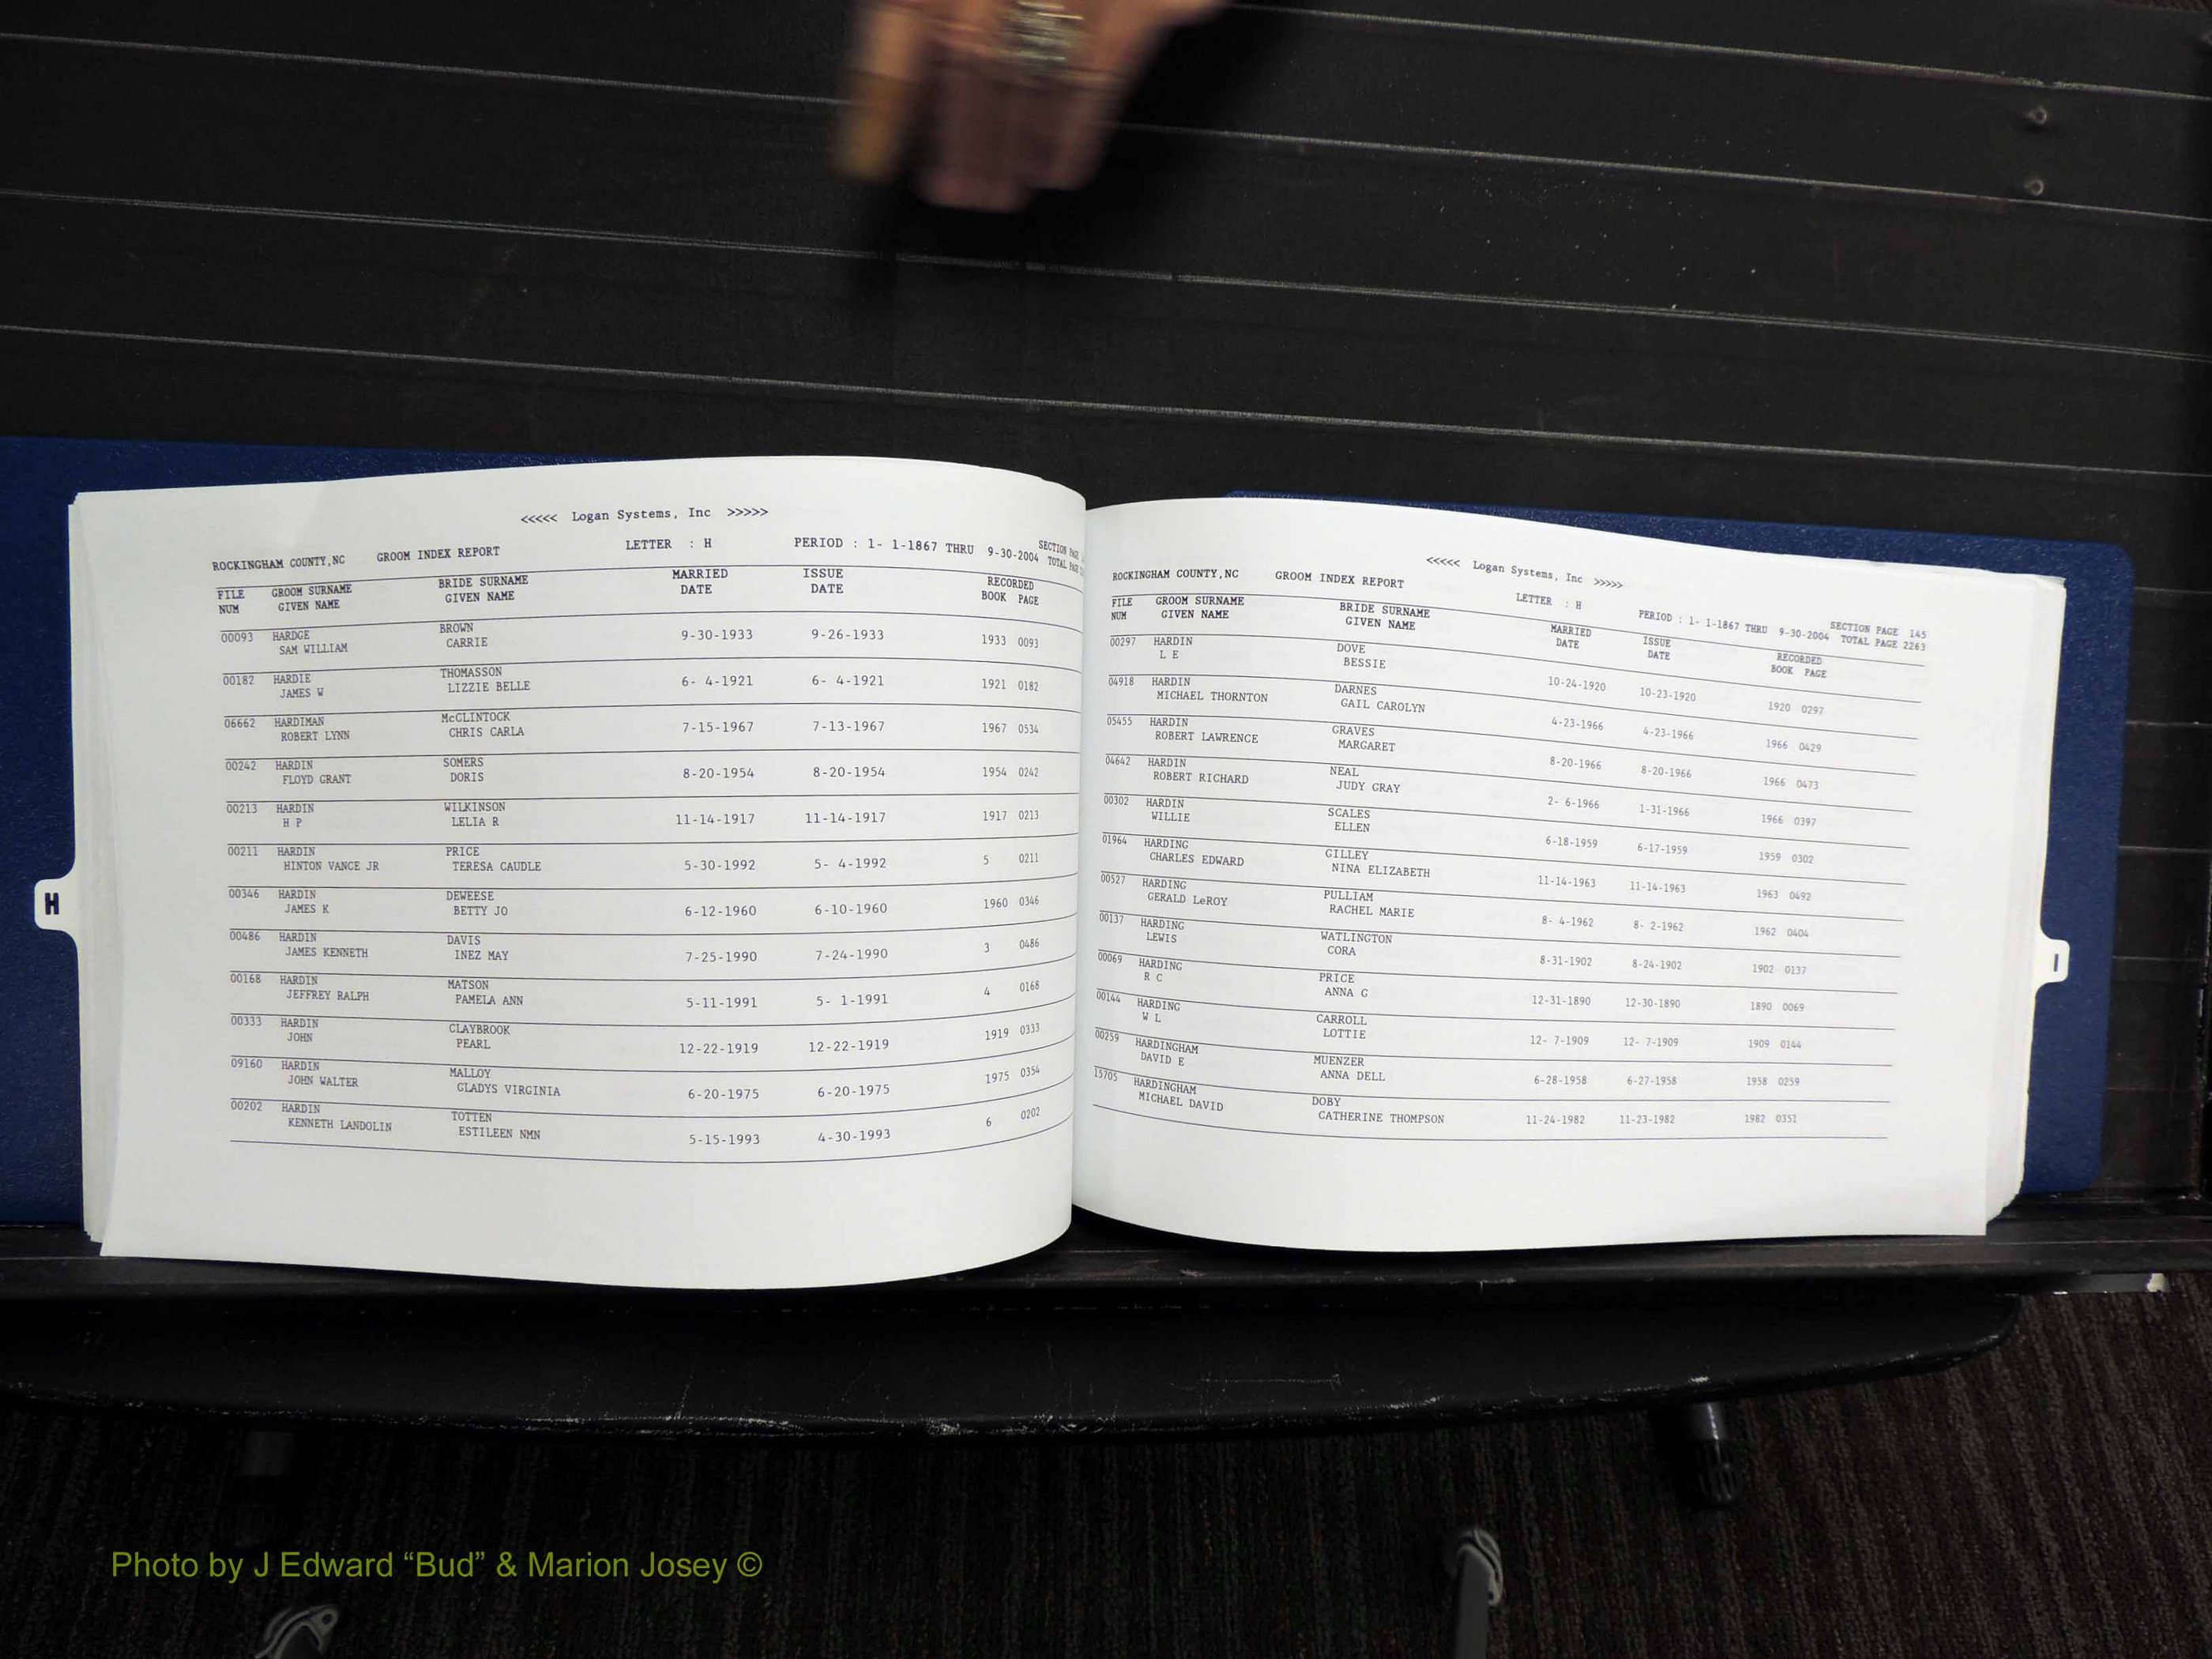 <<<<< Logan Systems, Inc >>>>>
ROCKINGHAM COUNTY,NC GROOM INDEX REPORT LETTER : H PERIOD : 1- 1-1867 THRU 9-30-2004 SECTION PAGE
TOTAL PAGE
FILE GROOM SURNAME BRIDE SURNAME MARRIED ISSUE RECORDED
NUM GIVEN NAME GIVEN NAME DATE DATE BOOK PAGE
00093 HARDGE BROWN 9-30-1933 9-26-1933 1933 0093
SAM WILLIAM CARRIE
00182 HARDIE THOMASSON 6- 4-1921 6- 4-1921 1921 0182
JAMES W LIZZIE BELLE
06662 HARDIMAN McCLINTOCK 7-15-1967 7-13-1967 1967 0534
ROBERT LYNN CHRIS CARLA
00242 HARDIN SOMERS 8-20-1954 8-20-1954 1954 0242
FLOYD GRANT DORIS
00213 HARDIN WILKINSON 11-14-1917 11-14-1917 1917 0213
H P LELIA R
00211 HARDIN PRICE 5-30-1992 5- 4-1992 5 0211
HINTON VANCE JR TERESA CAUDLE
00346 HARDIN DEWEESE 6-12-1960 6-10-1960 1960 0346
JAMES K BETTY JO
00486 HARDIN DAVIS 7-25-1990 7-24-1990 3 0486
JAMES KENNETH INEZ MAY
00168 HARDIN MATSON 5-11-1991 5- 1-1991 4 0168
JEFFREY RALPH PAMELA ANN
00333 HARDIN CLAYBROOK 12-22-1919 12-22-1919 1919 0333
JOHN PEARL
09160 HARDIN MALLOY 6-20-1975 6-20-1975 1975 0354
JOHN WALTER GLADYS VIRGINIA
00202 HARDIN TOTTEN 5-15-1993 4-30-1993 6 0202
KENNETH LANDOLIN ESTILEEN NMN
H
<<<<< Logan Systems, Inc >>>>>
ROCKINGHAM COUNTY,NC GROOM INDEX REPORT LETTER : H PERIOD : 1- 1-1867 THRU 9-30-2004 SECTION PAGE 145
TOTAL PAGE 2263
FILE GROOM SURNAME BRIDE SURNAME MARRIED ISSUE RECORDED
NUM GIVEN NAME GIVEN NAME DATE DATE BOOK PAGE
00297 HARDIN DOVE 10-24-1920 10-23-1920 1920 0297
L E BESSIE
04918 HARDIN DARNES 4-23-1966 4-23-1966 1966 0429
MICHAEL THORNTON GAIL CAROLYN
05455 HARDIN GRAVES 8-20-1966 8-20-1966 1966 0473
ROBERT LAWRENCE MARGARET
04642 HARDIN NEAL 2- 6-1966 1-31-1966 1966 0397
ROBERT RICHARD JUDY GRAY
00302 HARDIN SCALES 6-18-1959 6-17-1959 1959 0302
WILLIE ELLEN
01964 HARDING GILLEY 11-14-1963 11-14-1963 1963 0492
CHARLES EDWARD NINA ELIZABETH
00527 HARDING PULLIAM 8- 4-1962 8- 2-1962 1962 0404
GERALD LeROY RACHEL MARIE
00137 HARDING WATLINGTON 8-31-1902 8-24-1902 1902 0137
LEWIS CORA
00069 HARDING PRICE 12-31-1890 12-30-1890 1890 0069
R C ANNA G
00144 HARDING CARROLL 12- 7-1909 12- 7-1909 1909 0144
W L LOTTIE
00259 HARDINGHAM MUENZER 6-28-1958 6-27-1958 1958 0259
DAVID E ANNA DELL
15705 HARDINGHAM DOBY 11-24-1982 11-23-1982 1982 0351
MICHAEL DAVID CATHERINE THOMPSON
I
Photo by J Edward “Bud” & Marion Josey ©